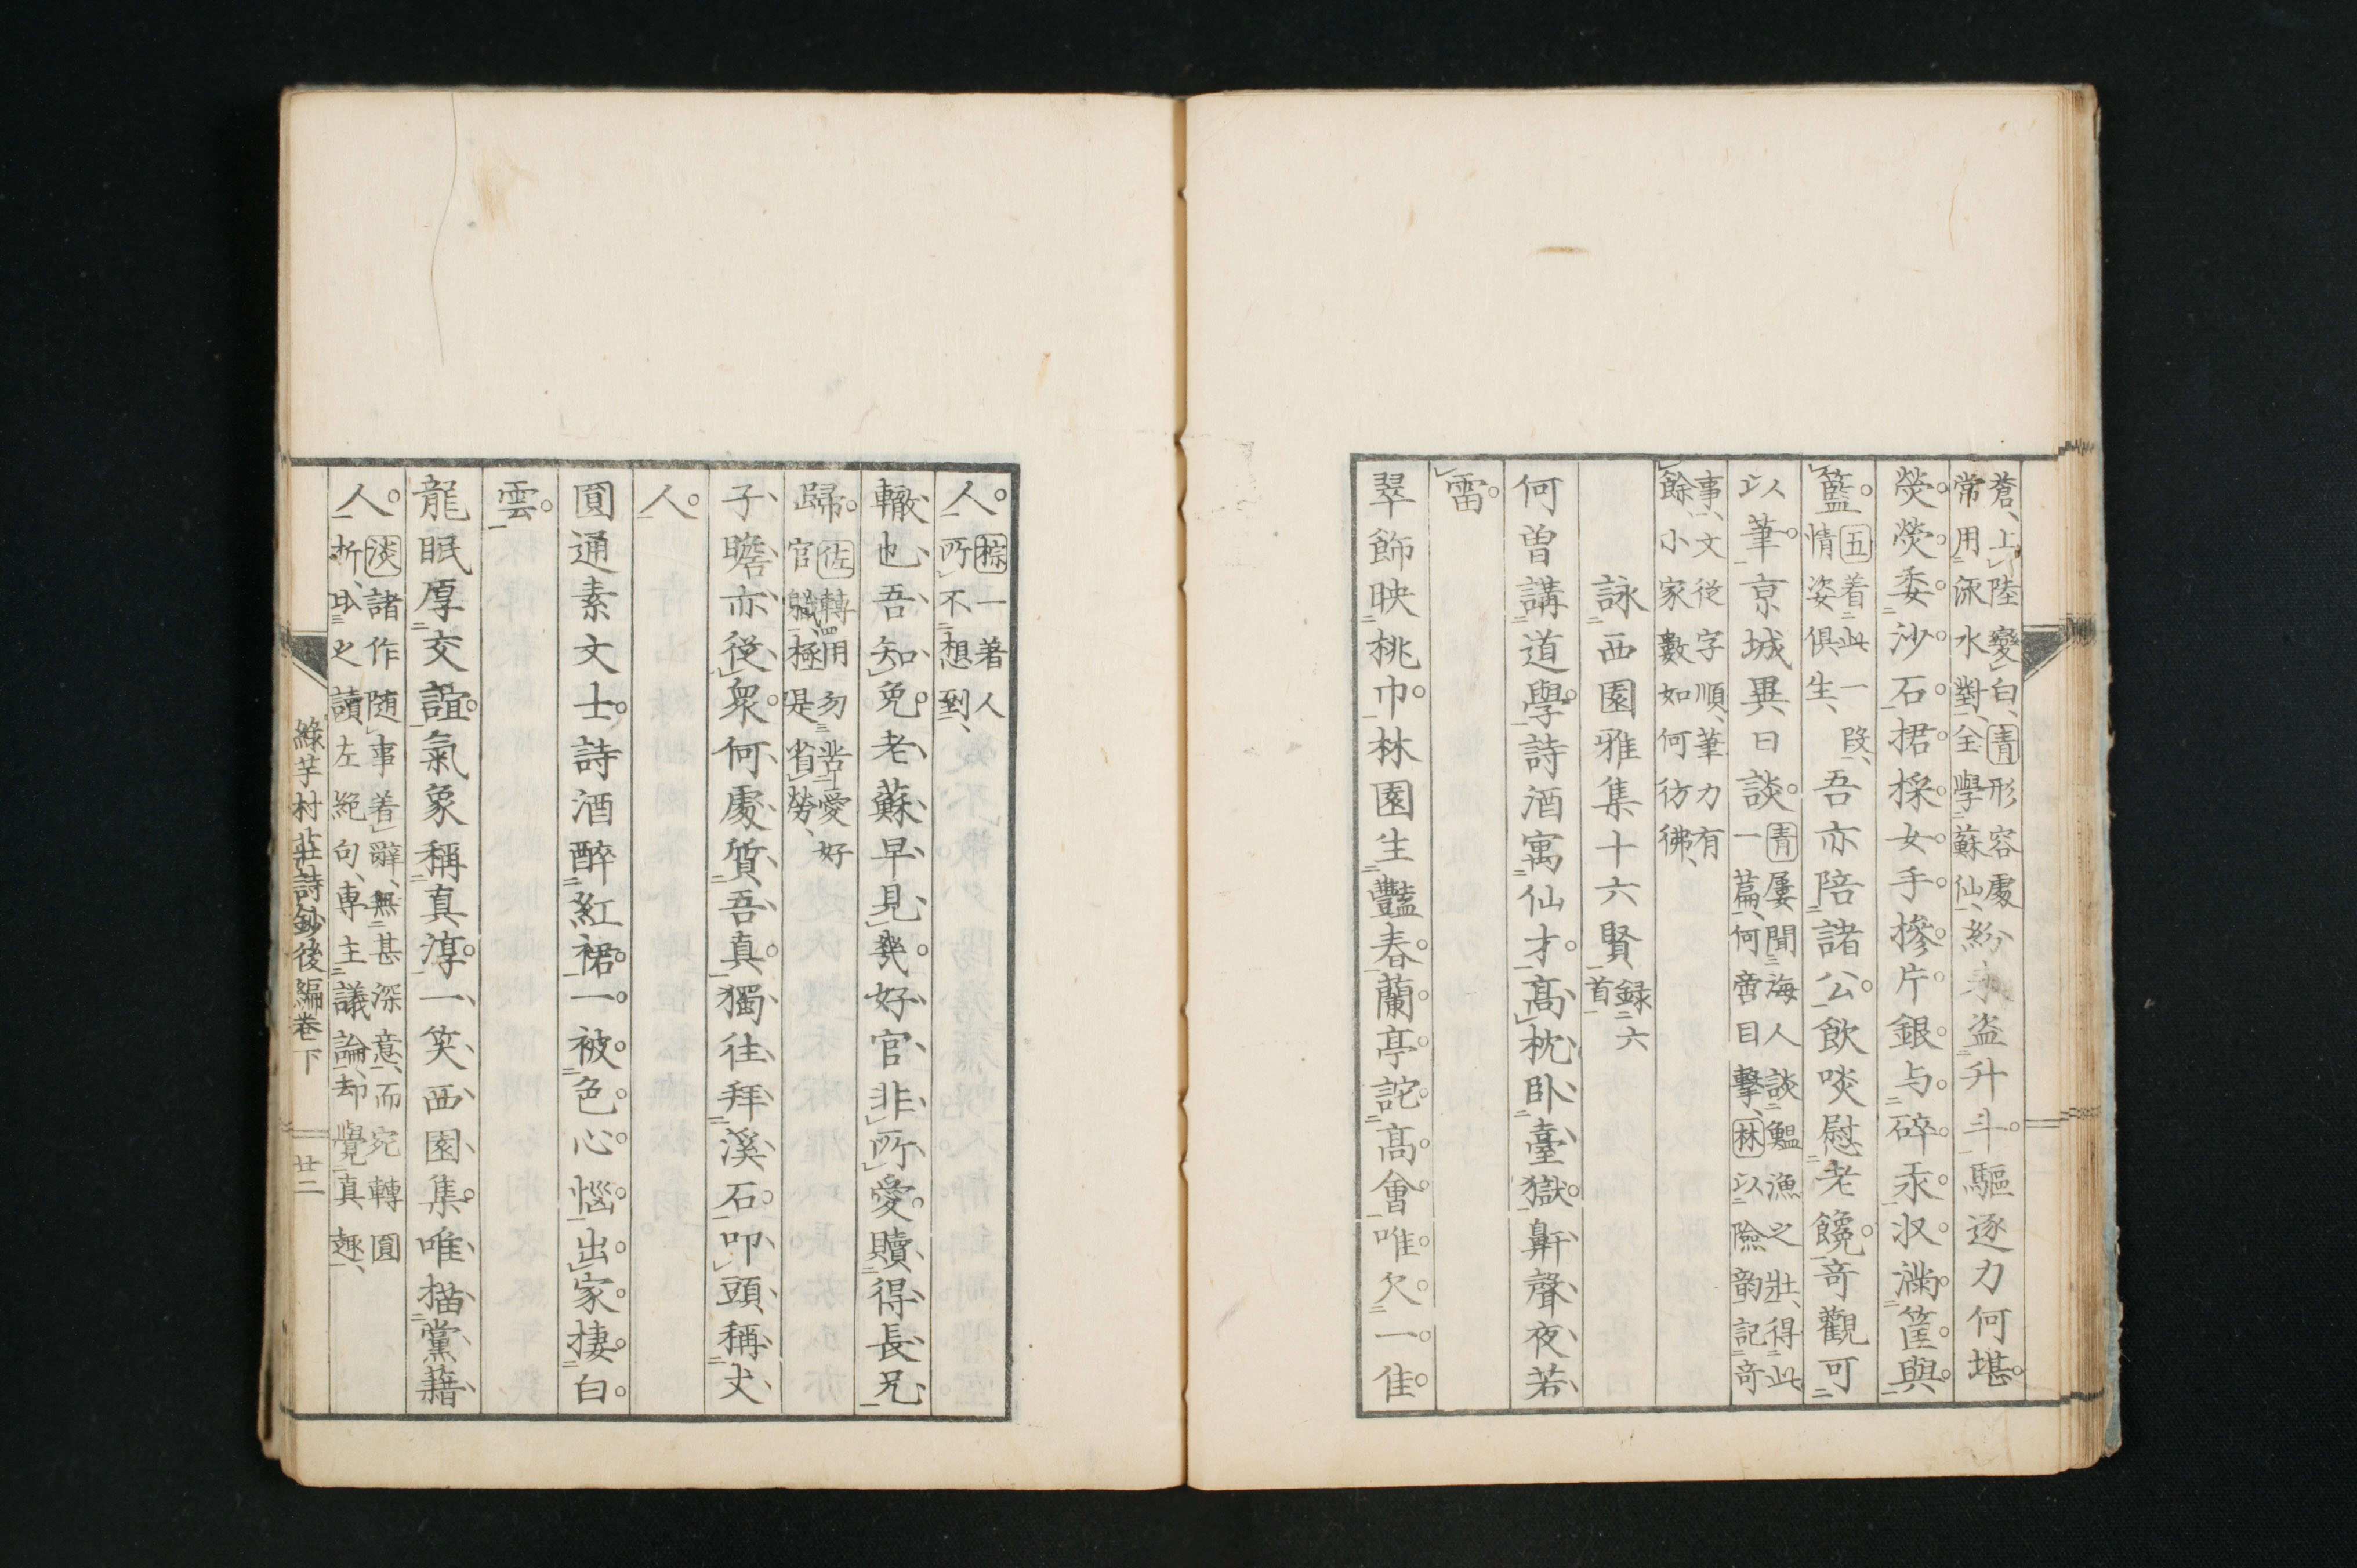 蒼、上陸變白、青形容處
常用㲽水對、全學蘇仙、紛 盗升斗驅逐力何堪
熒熒委沙石捃採女手摻片銀与碎汞汊滿筐與
籃 五着此一段、
情姿俱生、 吾亦陪諸公飲啖慰老饞奇觀可
以筆京城異日談 青屢聞海人談鰮漁之壯、得此
一篇、何啻目擊、林以險韵記奇
事、文從字順、筆力有
餘、小家數如何彷彿、
詠西園雅集十六賢 録六
首
何曾講道學詩酒寓仙才高枕臥臺獄鼾聲夜若
雷
翠飾映桃巾林園生豔春蘭亭詑高會唯欠一佳
人 棕一著人
所不想到、
轍也吾知免老蘇早見幾好官非所愛贖得長兄
歸 佐轉用勿苦愛好
官職、極是省勞、
子瞻亦從衆何處質吾真獨往拜溪石叩頭稱丈
人
圓通素文士詩酒醉紅裙一被色心惱出家棲白
雲
龍眠厚交誼氣象稱真淳一笑西園集唯描黨籍
人 淡諸作隨事着辭、無甚深意、而宛轉圓
折、甘之讀左絶句、專主議論、却覺真趣、
緑芋村莊詩鈔後編卷下
廿二